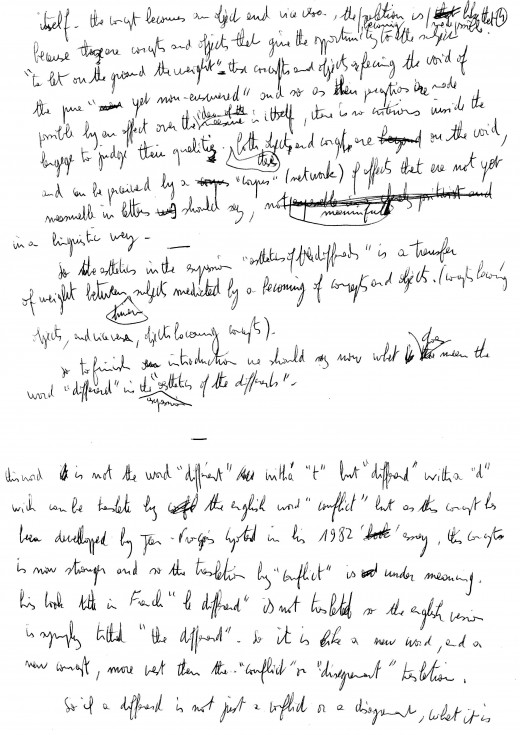 itself - the concept becomes an object and vice versa, the position is becoming possible
because there are concepts and objects that give the opportunity to the subject
"to let on the ground the weight" - these concepts and objects facing the void of
the pure "yet non-answered" and so as their perception is made
possible by an effect over the idea of the itself, there is no criterions inside the
language to judge their qualities, both objects and concepts are on the void,
and can be perceived by a "corpus" (network) of effects that are not yet
mesurable in letters should say, not meaninful
in a linguistic way -
So the esthetics in the expression "esthetics of the differends" is a transfer
of weight between subjects mediated by a becoming of concepts and objects. (concepts becoming
objects, and vice versa, objects becoming concepts).
so to finish introduction we should say now what does mean the
word "differend" in the expression "esthetics of the differends" -
this word is not the word "différent" with a "t" but "differend" with a "d"
wich can be translate by the english word "conflict" but as this concept has
been developped by Jean-François Lyotard in his 1982 essay, this concept
is now stronger and so the translation by "conflict" is under meaning.
his book title in French "le differend" is not translated so the english version
is symply titled "the differend" - so it is like a new word, and a
new concept, more vast than the "conflict" or "disagreement" translation.
So if a differend is not just a conflict or a disagreement, what it is